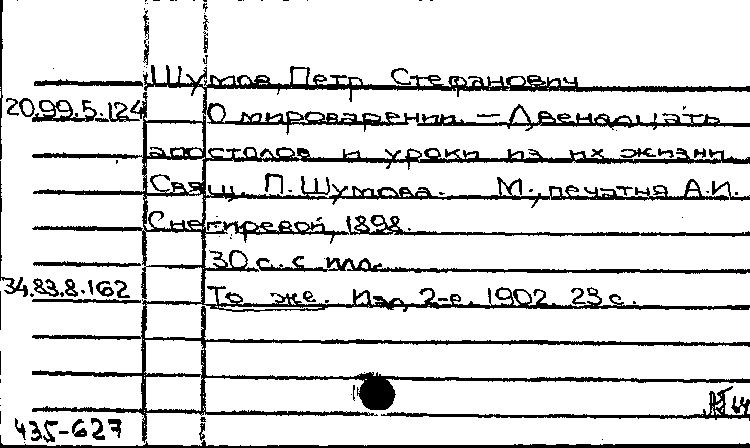 Шумов, Петр Стефанович
20.99.5.124 О мироварении. — Двенадцать
апостолов и уроки из их жизни
Свящ. П. Шумова. М., печатня А.И.
Снегиревой, 1898.
30 с. с илл.
34.83.8.162 То же. Изд. 2-е. 1902. 23 с.
435-627